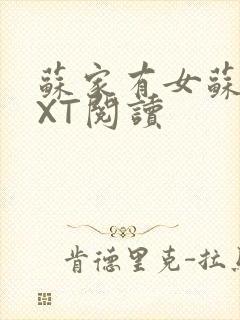 蘇家有女蘇
XT閱讀
肯德里克-拉